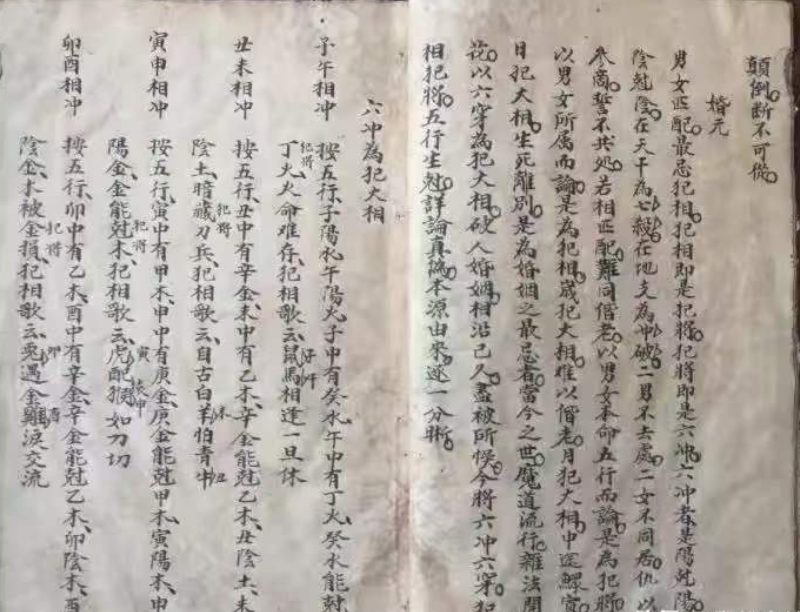 顛倒斷不可從
婚元
男女匹配最忌犯相犯相即是犯將犯將即是六冲六冲者是陽尅陽
陰尅陰在天干為七殺在地支為冲破二男不去處二女不同居仇以
參商誓不共处若相匹配難同偕老以男女本命五行而論是為犯將
以男女所属而論是為犯相崴犯大相难以偕老月犯大相中途鰥寡
日犯大相生死離别是為婚姻之最忌者當今之世魔道流行雜法開
花以六穿為犯大相破人婚姻相沿已久盡被所悞今將六冲六穿犯
相犯將五行生尅詳論真偽本源由來逐一分晰
六冲為犯大相
子午相冲 按五行子陽水午陽火子中有癸水午中有丁火癸水能尅
犯將
丁火火命难存犯相歌云鼠馬相逢一旦休
子午
丑未相冲 按五行丑中有辛金未中有乙木辛金能尅乙木丑陰土未
犯將
陰土暗藏刀兵犯相歌云自古白羊怕青牛
未 丑
寅申相冲 按五行寅中有甲木申中有庚金庚金能尅甲木寅陽木申
犯將
陽金金能尅木犯相歌云虎配猴如刀切
寅 申
卯酉相冲 按五行卯中有乙木酉中有辛金辛金能尅乙木卯陰木酉
犯將
陰金木被金損犯相歌云兎遇金雞淚交流
卯 酉